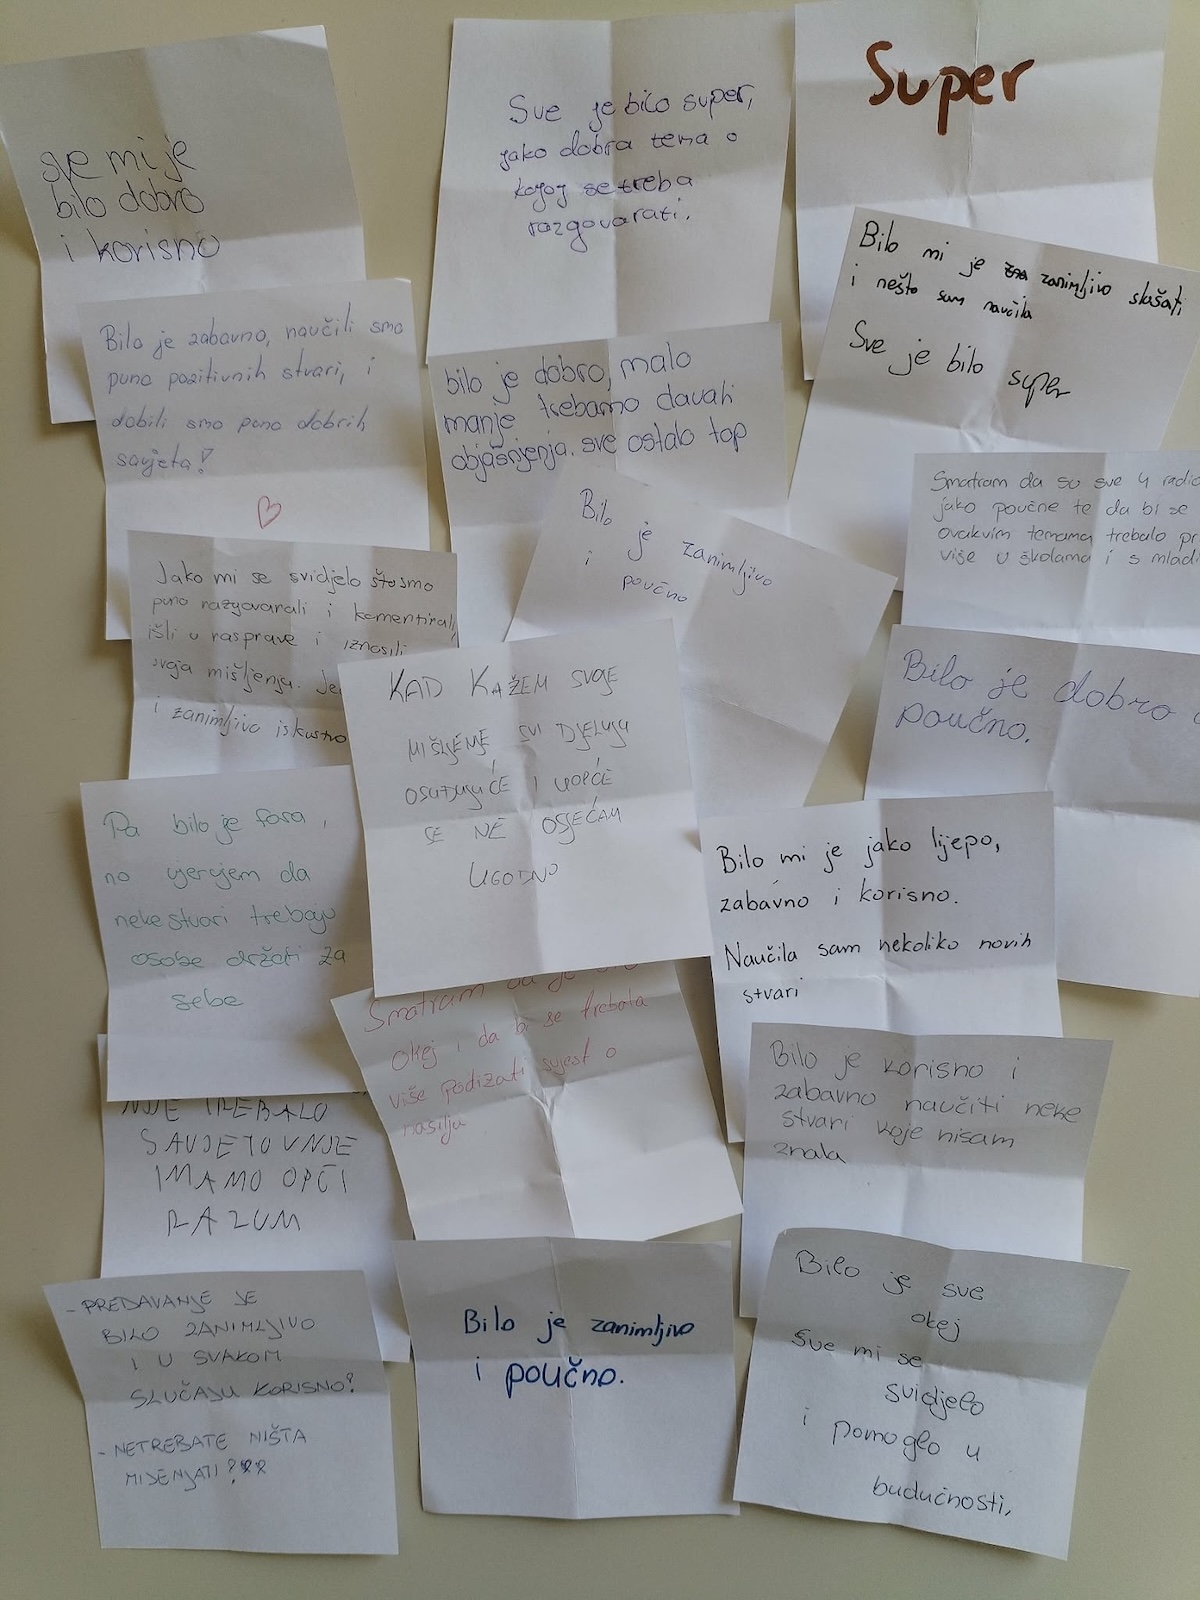 sve mi je
bilo dobro
i korisno
Sve je bilo super,
jako dobra tema o
kojoj se treba
razgovarati.
Super
Bilo mi je zanimljivo slušati
i nešto sam naučila
Sve je bilo super
Bilo je zabavno, naučili smo
puno pozitivnih stvari, i
dobili smo puno dobrih
savjeta!
bilo je dobro, malo
manje trebamo davati
objašnjenja. sve ostalo top
Smatram da su sve 4 radio
jako poučne te da bi se
ovakvim temama trebalo pr
više u školama i s mladi
Bilo
je zanimljivo
i poučno
Jako mi se svidjelo što smo
puno razgovarali i komentirali,
išli u rasprave i iznosili
svoja mišljenja.
i zanimljivo iskustvo
KAD KAŽEM SVOJE
MIŠLJENJE SVI DJELUJU
OSUĐUJUĆE I UOPĆE
SE NE OSJEĆAM
UGODNO
Bilo je dobro
poučno.
Pa bilo je fora,
no vjerujem da
neke stvari trebaju
osobe držati za
sebe
Bilo mi je jako lijepo,
zabavno i korisno.
Naučila sam nekoliko novih
stvari
Smatram da je
okej i da bi se trebala
više podizati svijest o
nasilju
Bilo je korisno i
zabavno naučiti neke
stvari koje nisam
znala
NIJE TREBALO
SAVJETOVNJE
IMAMO OPĆI
RAZUM
- PREDAVANJE JE
BILO ZANIMLJIVO
I U SVAKOM
SLUČAJU KORISNO!
- NETREBATE NIŠTA
MIJENJATI!
Bilo je zanimljivo
i poučno.
Bilo je sve
okej
sve mi se
svidjelo
i pomoglo u
budućnosti.